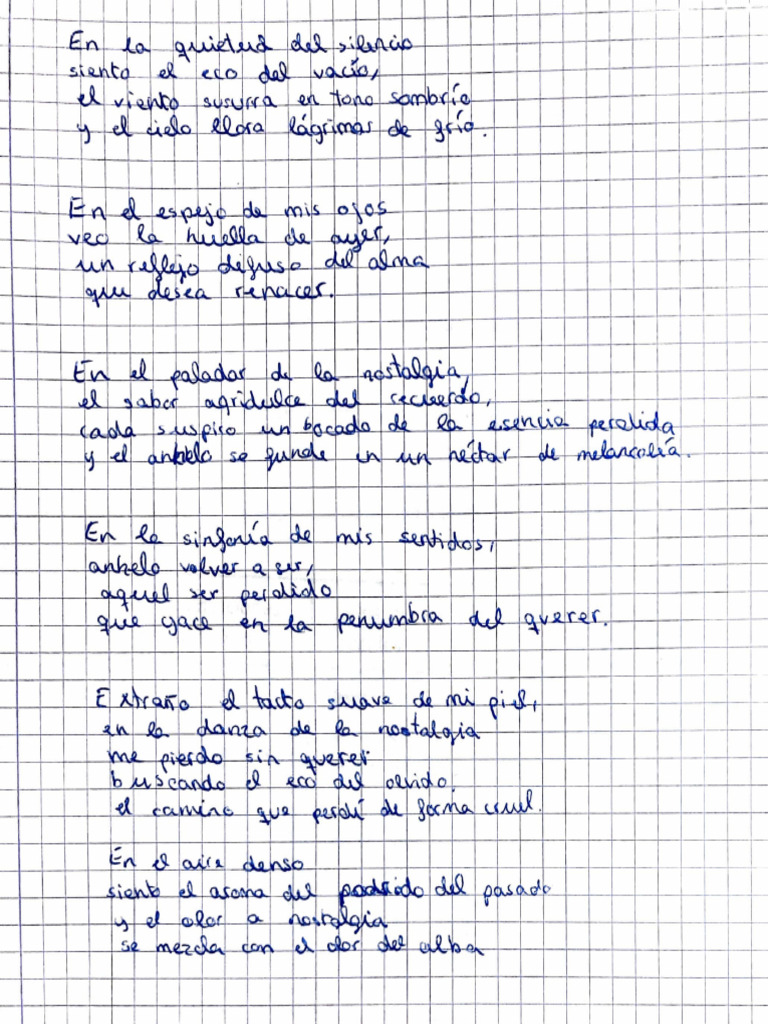 En la quietud del silencio
siento el eco del vacío,
el viento susurra en tono sombrío
y el cielo llora lágrimas de frío.
En el espejo de mis ojos
veo la huella de ayer,
un reflejo difuso del alma
que desea renacer.
En el paladar de la nostalgia,
el sabor agridulce del recuerdo,
cada suspiro un bocado de la esencia perdida
y el anhelo se funde en un néctar de melancolía.
En la sinfonía de mis sentidos,
anhelo volver a ser,
aquel ser perdido
que yace en la penumbra del querer.
Extraño el tacto suave de mi piel,
en la danza de la nostalgia
me pierdo sin querer
buscando el eco del olvido,
el camino que perdí de forma cruel.
En el aire denso
siento el aroma del podrido del pasado
y el olor a nostalgia
se mezcla con el olor del alba